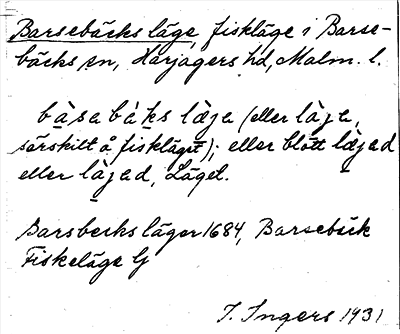 Barsebäcks läge, fiskläge i Barse-
bäcks sn, Harjagers hd, Malm. l.
bàsabáks læja (eller làja,
särskilt å fiskläget); eller blott læjad
eller làjad, Läget.
Barsbecks läger 1684, Barsebäck
Fiskeläge G
I. Ingers 1931